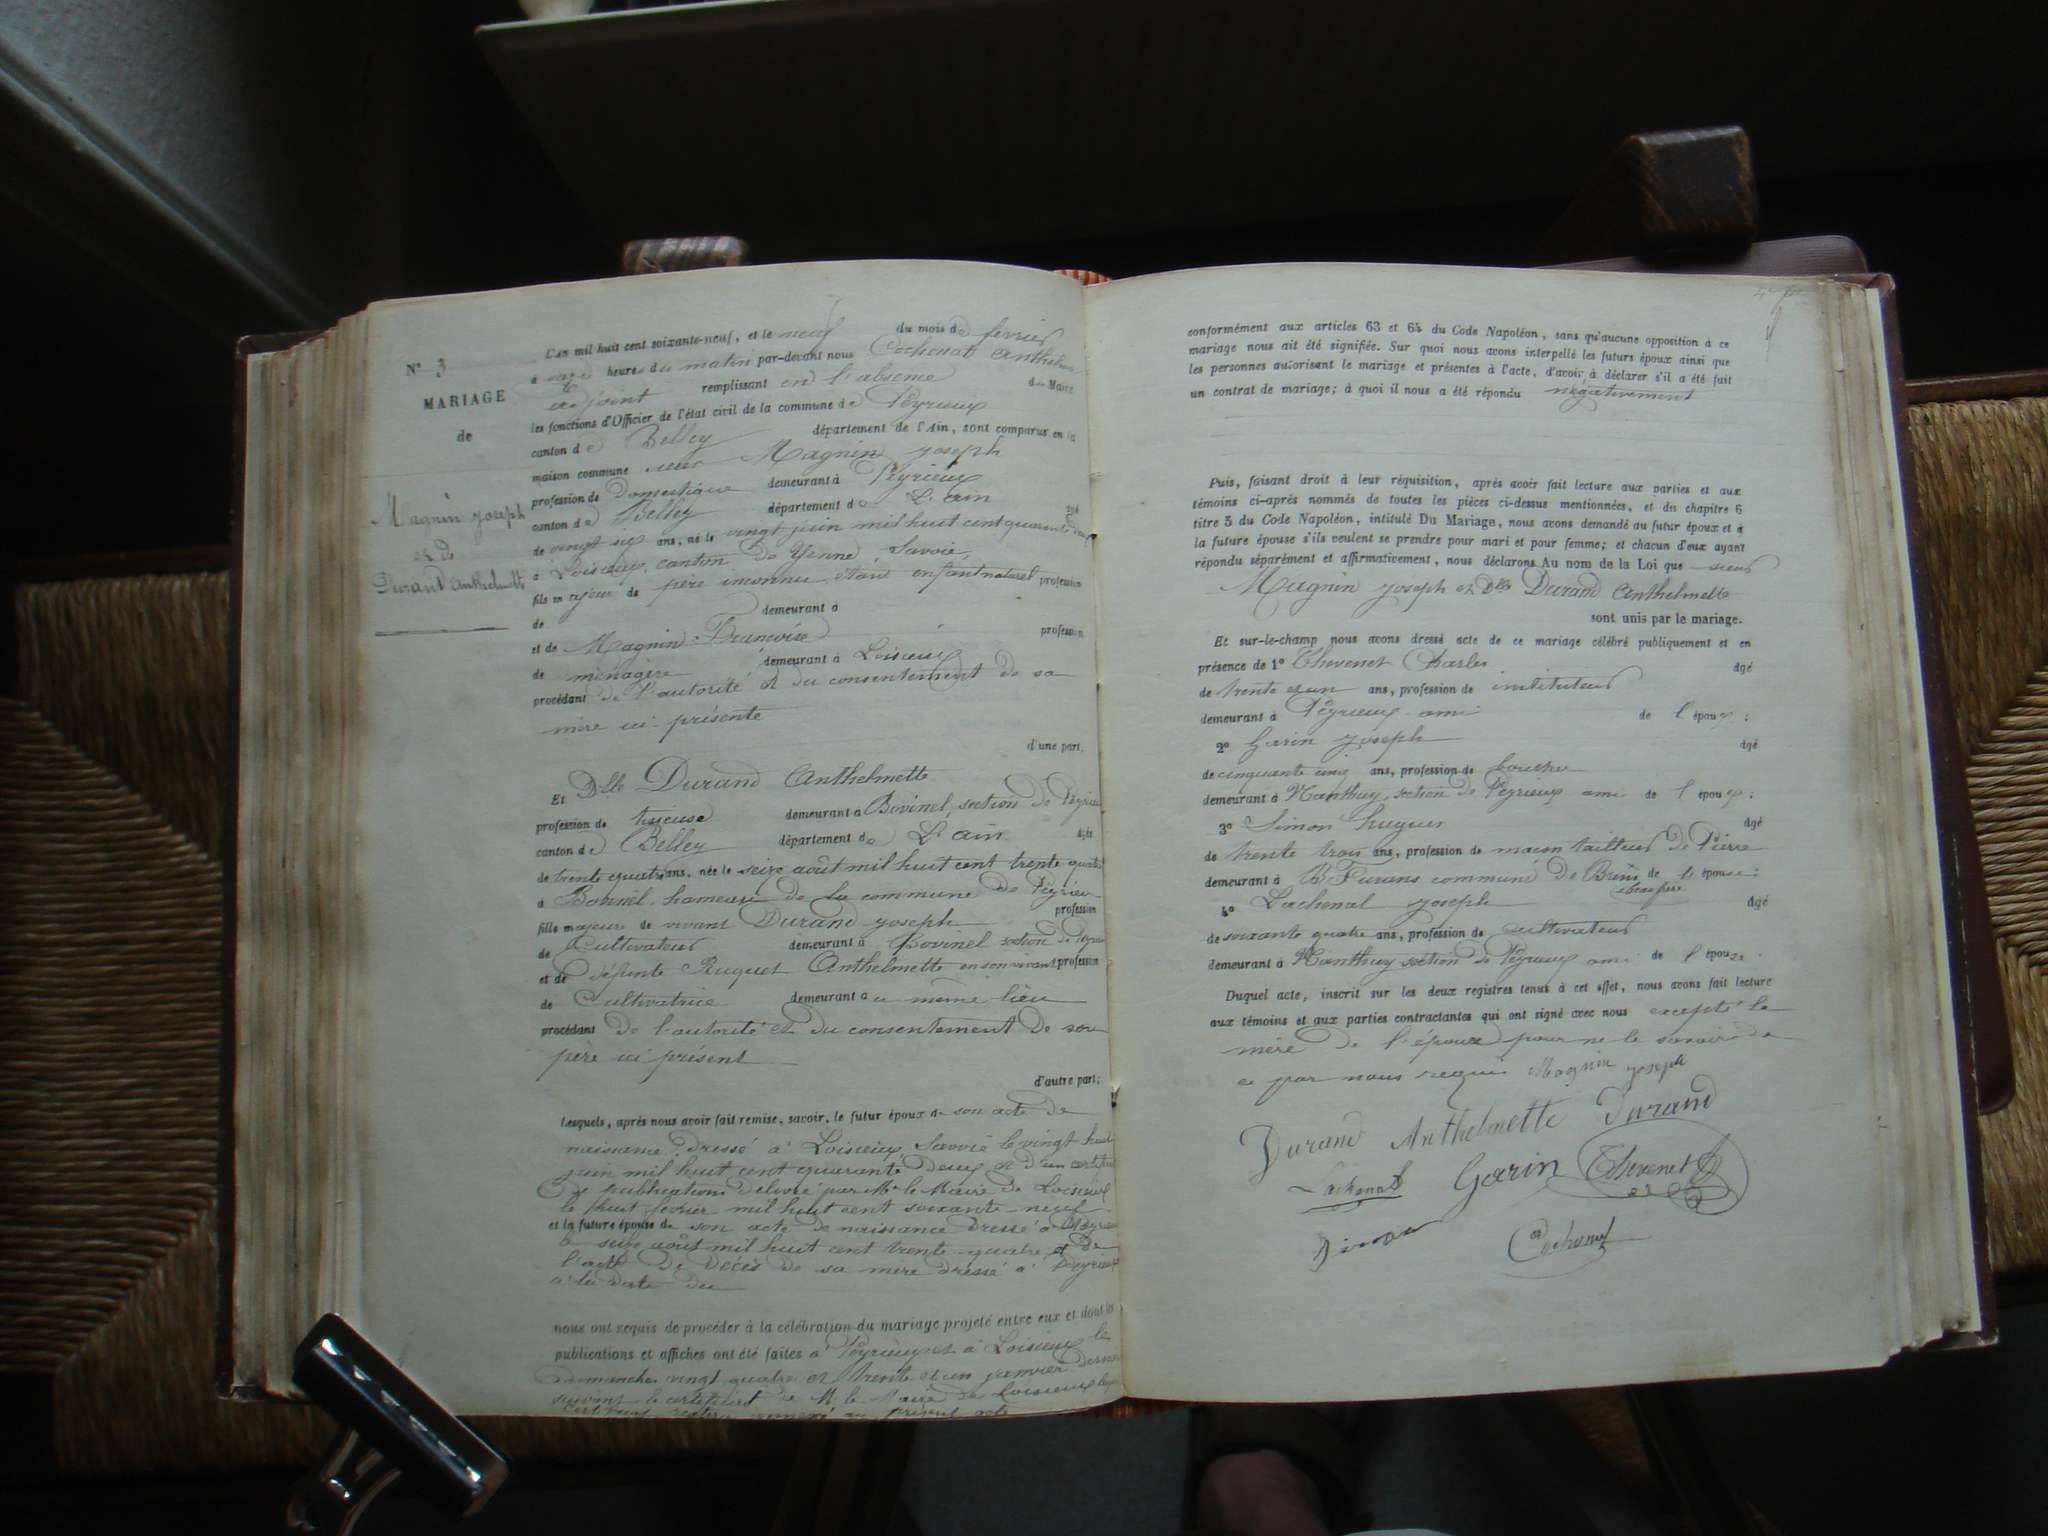 N° 3
MARIAGE
de
Magnin Joseph
et de
Durand Anthelmette
L'an mil huit cent soixante-neuf, et le neuf du mois de février
à onze heures du matin par-devant nous Cochonat Anthelme
adjoint remplissant en l'absence du Maire
les fonctions d'Officier de l'état civil de la commune de Peyrieux
canton de Belley département de l'Ain, sont comparus en la
maison commune sieur Magnin Joseph
profession de domestique demeurant à Peyrieux
canton de Belley département de L'ain âgé
de vingt six ans, né le vingt juin mil huit cent quarante deux
à Loisieux, canton de Yenne, Savoie,
fils majeur de père inconnu, étant enfant naturel profession
de demeurant à
et de Magnin Françoise profession
de ménagère demeurant à Loisieux
procédant de l'autorité et du consentement de sa
mère ici présente
d'une part,
Et Dlle Durand Anthelmette
profession de tisseuse demeurant à Bovinel, section de Peyrieu
canton de Belley département de L'ain âgée
de trente quatre ans, née le seize août mil huit cent trente quatre
à Bovinel, hameau de la commune de Peyrieu
fille majeure de vivant Durand Joseph profession
de Cultivateur demeurant à Bovinel section de Peyrieu
et de défunte Ruguet Anthelmette en son vivant profession
de Cultivatrice demeurant au même lieu
procédant de l'autorité et du consentement de son
père ici présent
d'autre part;
Lesquels, après nous avoir fait remise, savoir, le futur époux de son acte de
naissance, dressé à Loisieux, Savoie le vingt huit
juin mil huit cent quarante deux et d'un certificat
de publications délivré par Mr le Maire de Loisieux
le huit février mil huit cent soixante-neuf
et la future épouse de son acte de naissance dressé à Peyrieu
le seize août mil huit cent trente-quatre et de
l'acte de décès de sa mère dressé à Peyrieux
à la date du
nous ont requis de procéder à la célébration du mariage projeté entre eux et dont les
publications et affiches ont été faites à Peyrieux et à Loisieux les
dimanches vingt quatre et trente et un janvier dernier
suivant le certificat de M. le Maire de Loisieux lequel
certificat restera annexé au présent acte
conformément aux articles 63 et 64 du Code Napoléon, sans qu'aucune opposition à ce
mariage nous ait été signifiée. Sur quoi nous avons interpellé les futurs époux ainsi que
les personnes autorisant le mariage et présentes à l'acte, d'avoir à déclarer s'il a été fait
un contrat de mariage; à quoi il nous a été répondu négativement
Puis, faisant droit à leur réquisition, après avoir fait lecture aux parties et aux
témoins ci-après nommés de toutes les pièces ci-dessus mentionnées, et du chapitre 6
titre 5 du Code Napoléon, intitulé Du Mariage, nous avons demandé au futur époux et à
la future épouse s'ils veulent se prendre pour mari et pour femme; et chacun d'eux ayant
répondu séparément et affirmativement, nous déclarons Au nom de la Loi que sieur
Magnin Joseph et Dlle Durand Anthelmette
sont unis par le mariage.
Et sur-le-champ nous avons dressé acte de ce mariage célébré publiquement et en
présence de 1° Thevenet Charles âgé
de trente et un ans, profession de instituteur
demeurant à Peyrieux ami de l'époux;
2° Garin Joseph âgé
de cinquante cinq ans, profession de boucher
demeurant à Nanthuy, section de Peyrieux ami de l'époux;
3° Simon hugues âgé
de trente trois ans, profession de maçon tailleur de Pierre
demeurant à Furans commune de Brens de l'épouse;
beau frère
4° Lachenal Joseph âgé
de soixante quatre ans, profession de cultivateur
demeurant à Nanthuy section de Peyrieux ami de l'épouse
Duquel acte, inscrit sur les deux registres tenus à cet effet, nous avons fait lecture
aux témoins et aux parties contractantes qui ont signé avec nous excepté la
mère de l'époux pour ne le savoir de
ce par nous requis Magnin Joseph
Durand Anthelmette Durand
Lachenal Garin Thevenet
Simon Cochonat